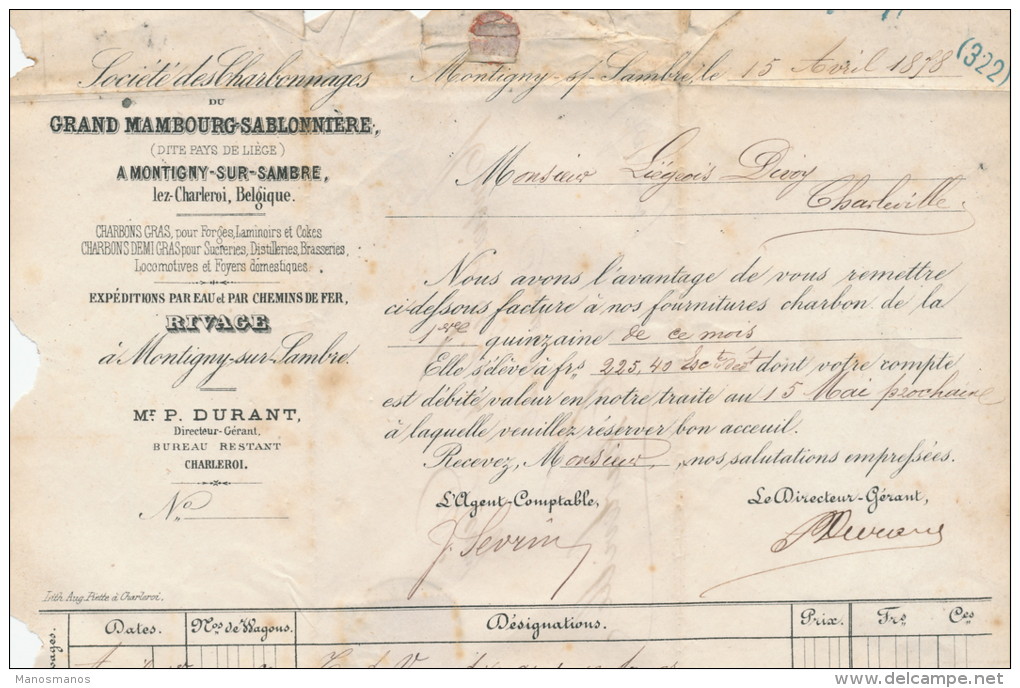 Société des Charbonnages
DU
GRAND MAMBOURG-SABLONNIÈRE,
(DITE PAYS DE LIÈGE)
A MONTIGNY-SUR-SAMBRE,
lez-Charleroi, Belgique.
CHARBONS GRAS, pour Forges, Laminoirs et Cokes
CHARBONS DEMI GRAS pour Sucreries, Distilleries, Brasseries,
Locomotives et Foyers domestiques
EXPÉDITIONS PAR EAU et PAR CHEMINS DE FER,
RIVAGE
à Montigny-sur-Sambre.
Mr. P. DURANT,
Directeur-Gérant,
BUREAU RESTANT
CHARLEROI.
No
Montigny-s/-Sambre, le 15 Avril 1878
(322)
Monsieur Liégeois Divoy
Charleville.
Nous avons l'avantage de vous remettre
ci-dessous facture à nos fournitures charbon de la
1ere quinzaine de ce mois
Elle s'élève à frs 225,40 dont votre compte
est débité valeur en notre traite au 15 Mai prochain
à laquelle veuillez réserver bon acceuil.
Recevez, Monsieur, nos salutations empressées.
L'Agent-Comptable,
Le Directeur-Gérant,
J. Sevrin
PDurant
Lith. Aug. Piette à Charleroi.
Dates.
Nos de Wagons.
Désignations.
Prix.
Frs
Ces
Manosmanos